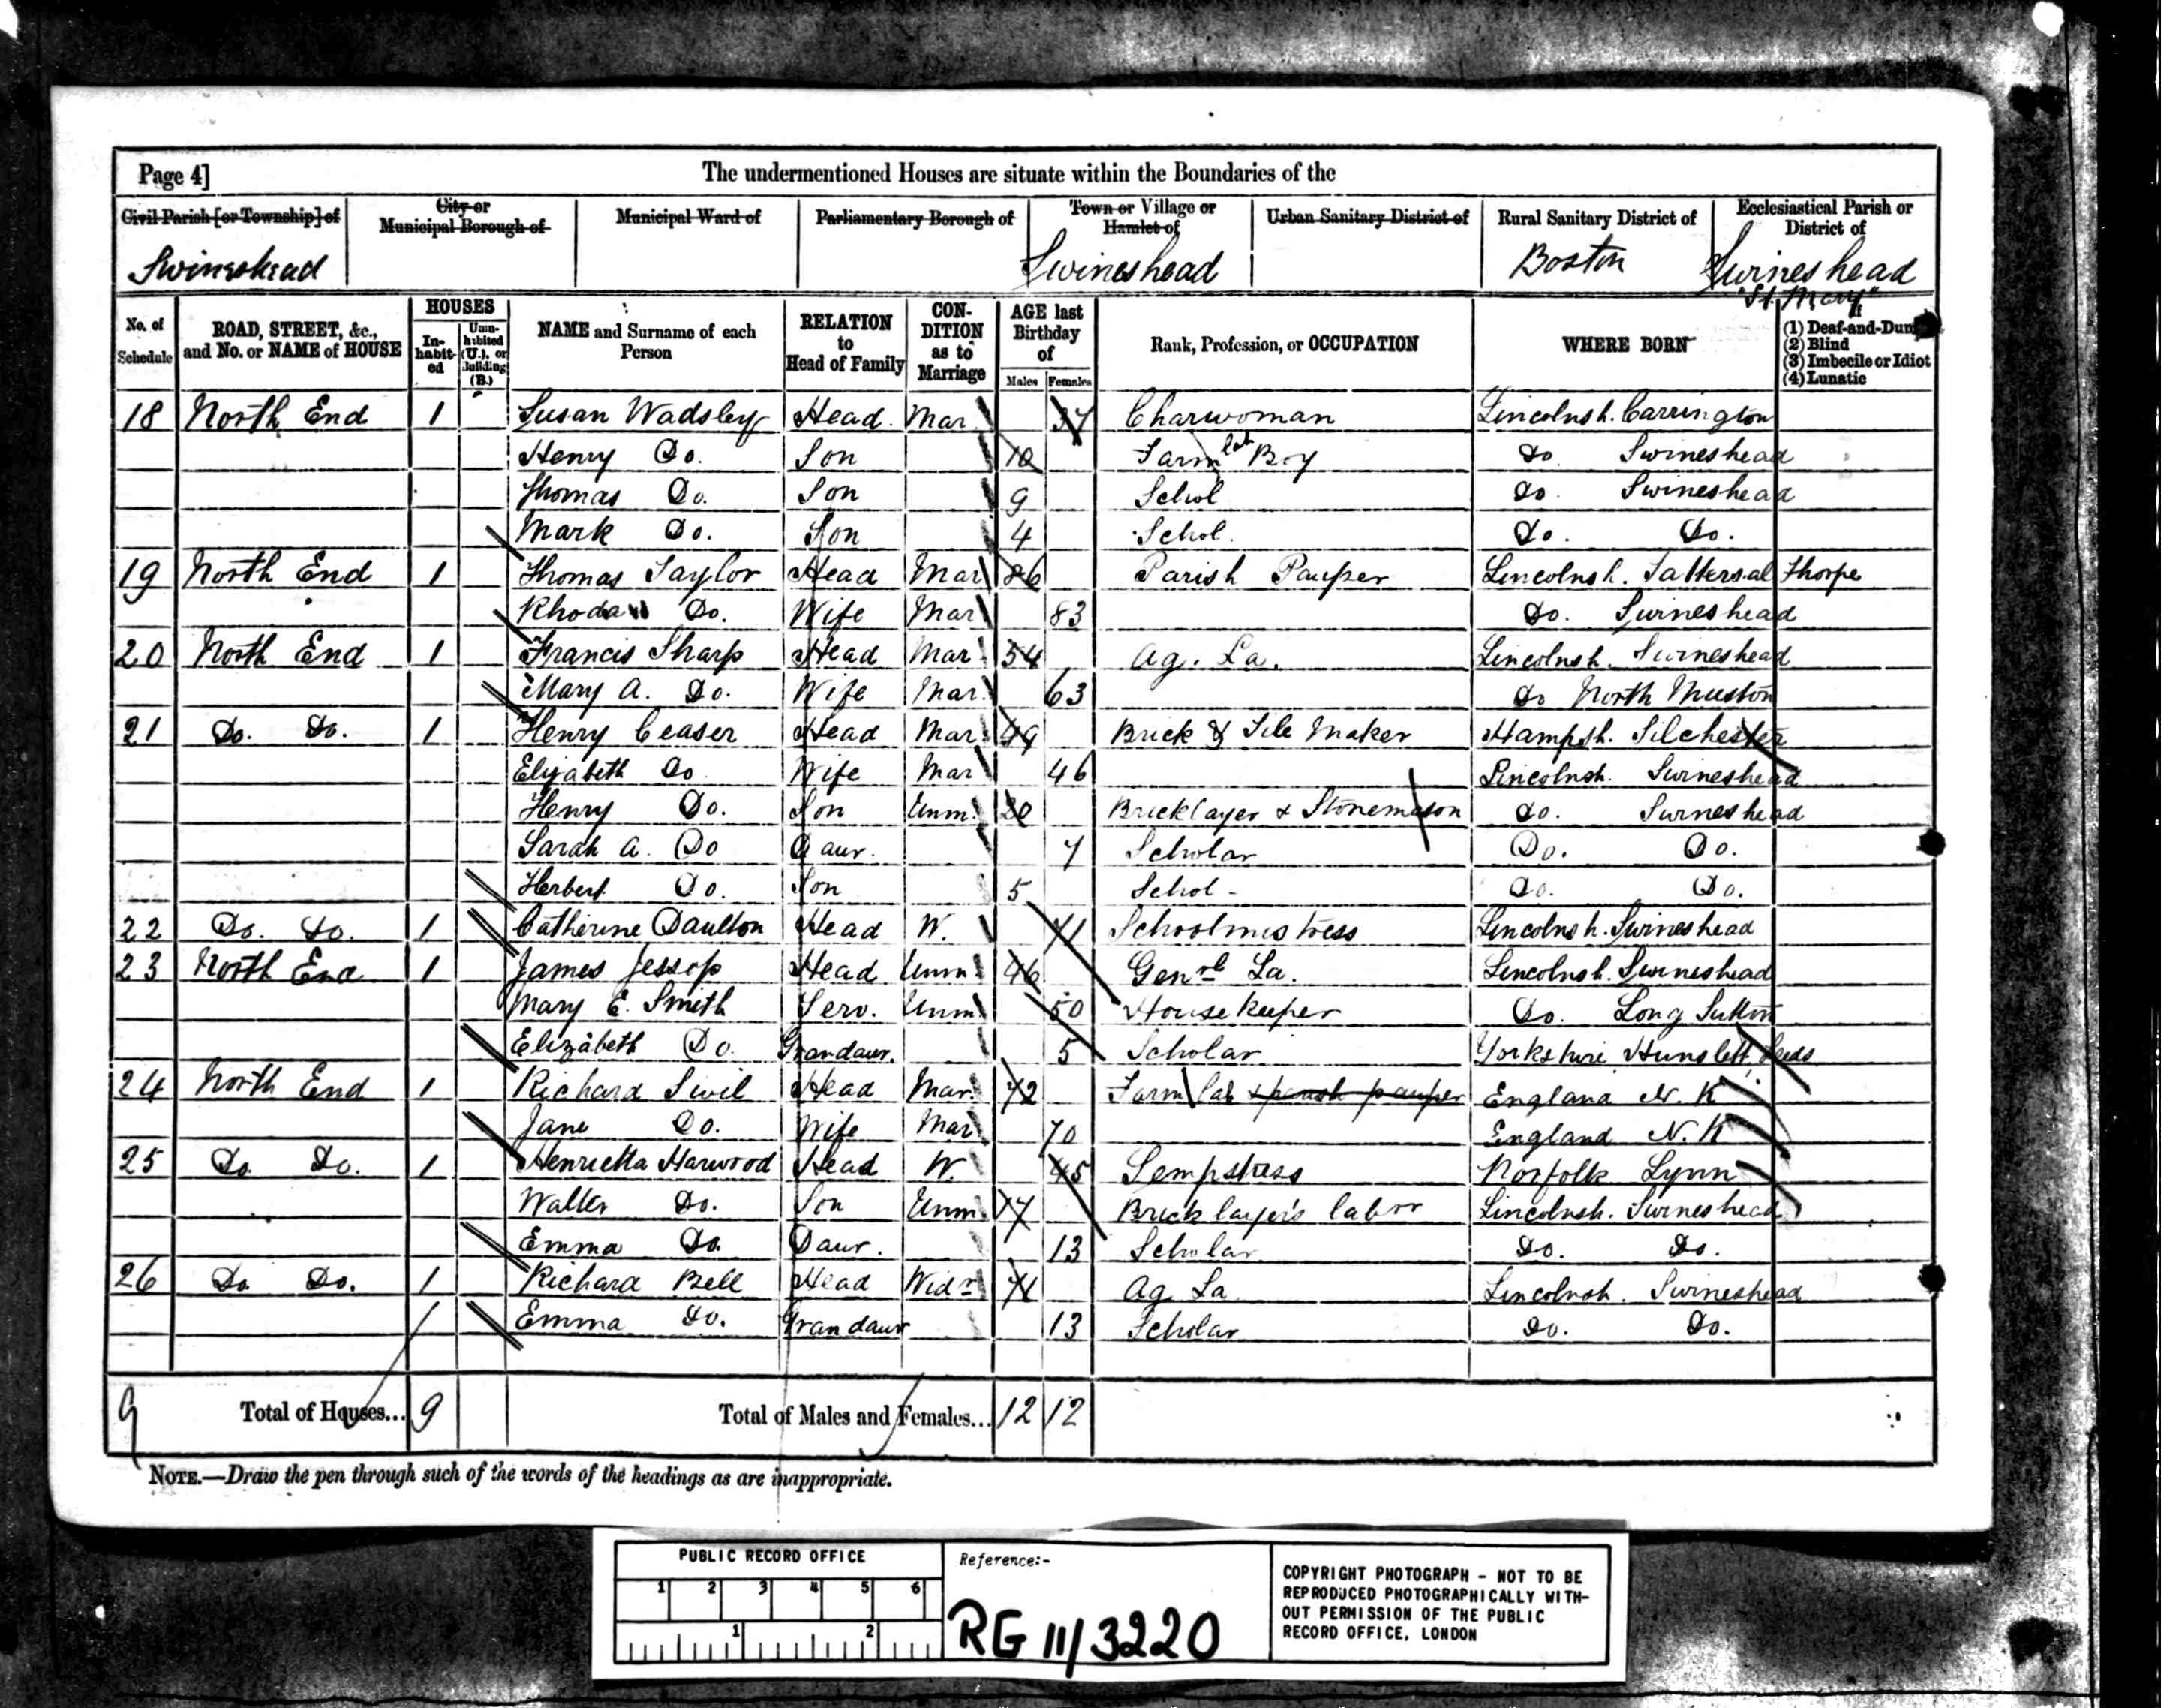 Page 4]
The undermentioned Houses are situate within the Boundaries of the
Civil Parish [or Township] of
City or Municipal Borough of
Municipal Ward of
Parliamentary Borough of
Town or Village or Hamlet of
Urban Sanitary District of
Rural Sanitary District of
Ecclesiastical Parish or District of
Swineshead Swineshead Boston Swineshead "St. Mary"
No. of Schedule
ROAD, STREET, &c., and No. or NAME of HOUSE
HOUSES
In-habit-ed
Unin-habited (U.), or Building (B.)
NAME and Surname of each Person
RELATION to Head of Family
CON-DITION as to Marriage
AGE last Birthday of
Males Females
Rank, Profession, or OCCUPATION
WHERE BORN
If
(1) Deaf-and-Dumb
(2) Blind
(3) Imbecile or Idiot
(4) Lunatic
18 North End 1 Susan Wadsley Head Mar 37 Charwoman Lincolnsh. Carrington
Henry Do. Son 10 Farm lab Boy do Swineshead
Thomas Do. Son 9 Schol do. Swineshead
Mark Do. Son 4 Schol. do. Do.
19 North End 1 Thomas Taylor Head Mar 86 Parish Pauper Lincolnsh. Tattersal Thorpe
Rhoda Do. Wife Mar 83 Do. Swineshead
20 North End 1 Francis Sharp Head Mar 54 Ag. La. Lincolnsh. Swineshead
Mary A. Do. Wife Mar. 63 do North
21 Do. Do. 1 Henry Ceaser Head Mar. 49 Brick & Tile Maker Hampsh. Silchester
Elizabeth Do Wife Mar 46 Lincolnsh. Swineshead
Henry Do. Son Unm. 20 Bricklayer & Stonemason do. Swineshead
Sarah A. Do Daur. 7 Scholar Do. Do.
Herbert Do. Son 5 Schol - Do. Do.
22 Do. Do. 1 Catherine Daulton Head W. 71 Schoolmistress Lincolnsh. Swineshead
23 North End 1 James Jessop Head Unm. 46 Genrl La. Lincolnsh. Swineshead
Mary E. Smith Serv. Unm 50 Housekeeper Do. Long Sutton
Elizabeth Do. Grandaur. 5 Scholar Yorkshire Hunslett Leeds
24 North End 1 Richard Sivil Head Mar. 72 Farm lab & parish pauper England N. K
Jane Do. Wife Mar 70 England N. K
25 Do Do. 1 Henrietta Harwood Head W. 45 Sempstress Norfolk Lynn
Walter Do. Son Unm. 17 Bricklayer's labrr Lincolnsh. Swineshead
Emma Do. Daur. 13 Scholar Do. Do.
26 Do Do. 1 Richard Bell Head Widr 71 Ag La Lincolnsh. Swineshead
Emma Do. Grandaur 13 Scholar Do. Do.
9 Total of Houses... 9 Total of Males and Females... 12 12
NOTE.—Draw the pen through such of the words of the headings as are inappropriate.
PUBLIC RECORD OFFICE
1 2 3 4 5 6
1 2
Reference:-
RG 11/3220
COPYRIGHT PHOTOGRAPH - NOT TO BE
REPRODUCED PHOTOGRAPHICALLY WITH-
OUT PERMISSION OF THE PUBLIC
RECORD OFFICE, LONDON